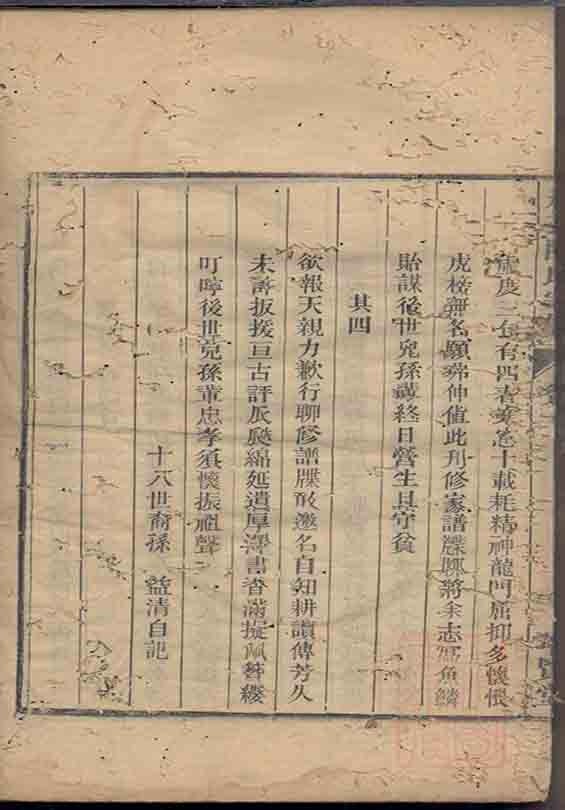 度三年有四書卷十載耗精神龍門屈抑多懷恨
虎榜無名願弗伸值此刋修家譜牒聊將余志寫魚鱗
貽謀後世兒孫識終日營生且守貧
其四
欲報天親力歉行聊修譜牒敢邀名自知耕讀傳芳久
未許扳援亘古評瓜瓞綿延遺厚澤書香滿擬佩簪纓
叮嚀後世兒孫輩忠孝須懷振祖聲
十六世裔孫 益清自記